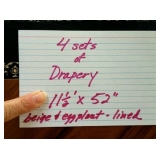 4 sets
of
Drapery
11½' x 52"
beige & eggplant - lined